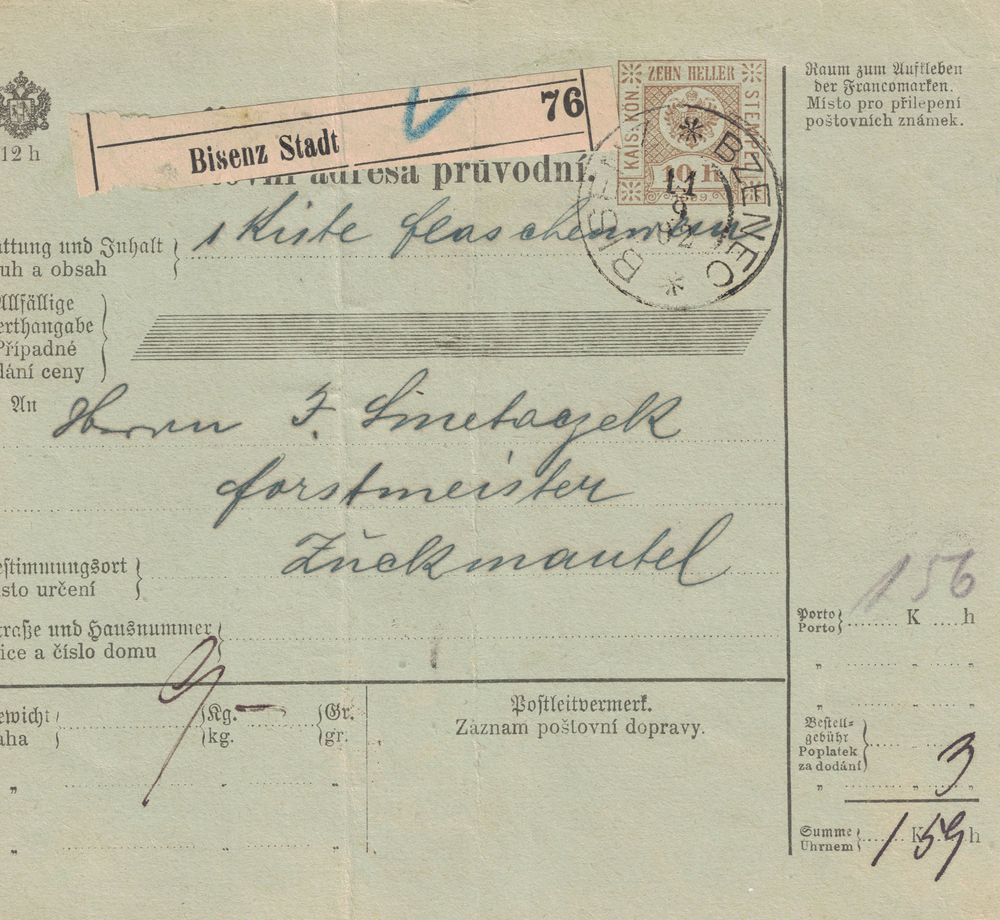 12 h
Bisenz Stadt
76
ZEHN HELLER
KAIS. KÖN.
STEMPEL
10 h
BZENEC
11
9
02
adresa průvodní.
Raum zum Aufkleben
der Francomarken.
Místo pro přilepení
poštovních známek.
attung und Inhalt
uh a obsah
1 Kiste flaschenwein
Allfällige
erthangabe
Případné
dání ceny
An
Herrn F. Smetaczek
forstmeister
Zuckmantel
estimmungsort
sto určení
traße und Hausnummer
ice a číslo domu
ewicht
aha
9 –
Kg.
kg.
Gr.
gr.
Postleitvermerk.
Záznam poštovní dopravy.
156
Porto
Porto
K h
Bestell-
gebühr
Poplatek
za dodání
3
Summe
Úhrnem
K h
159